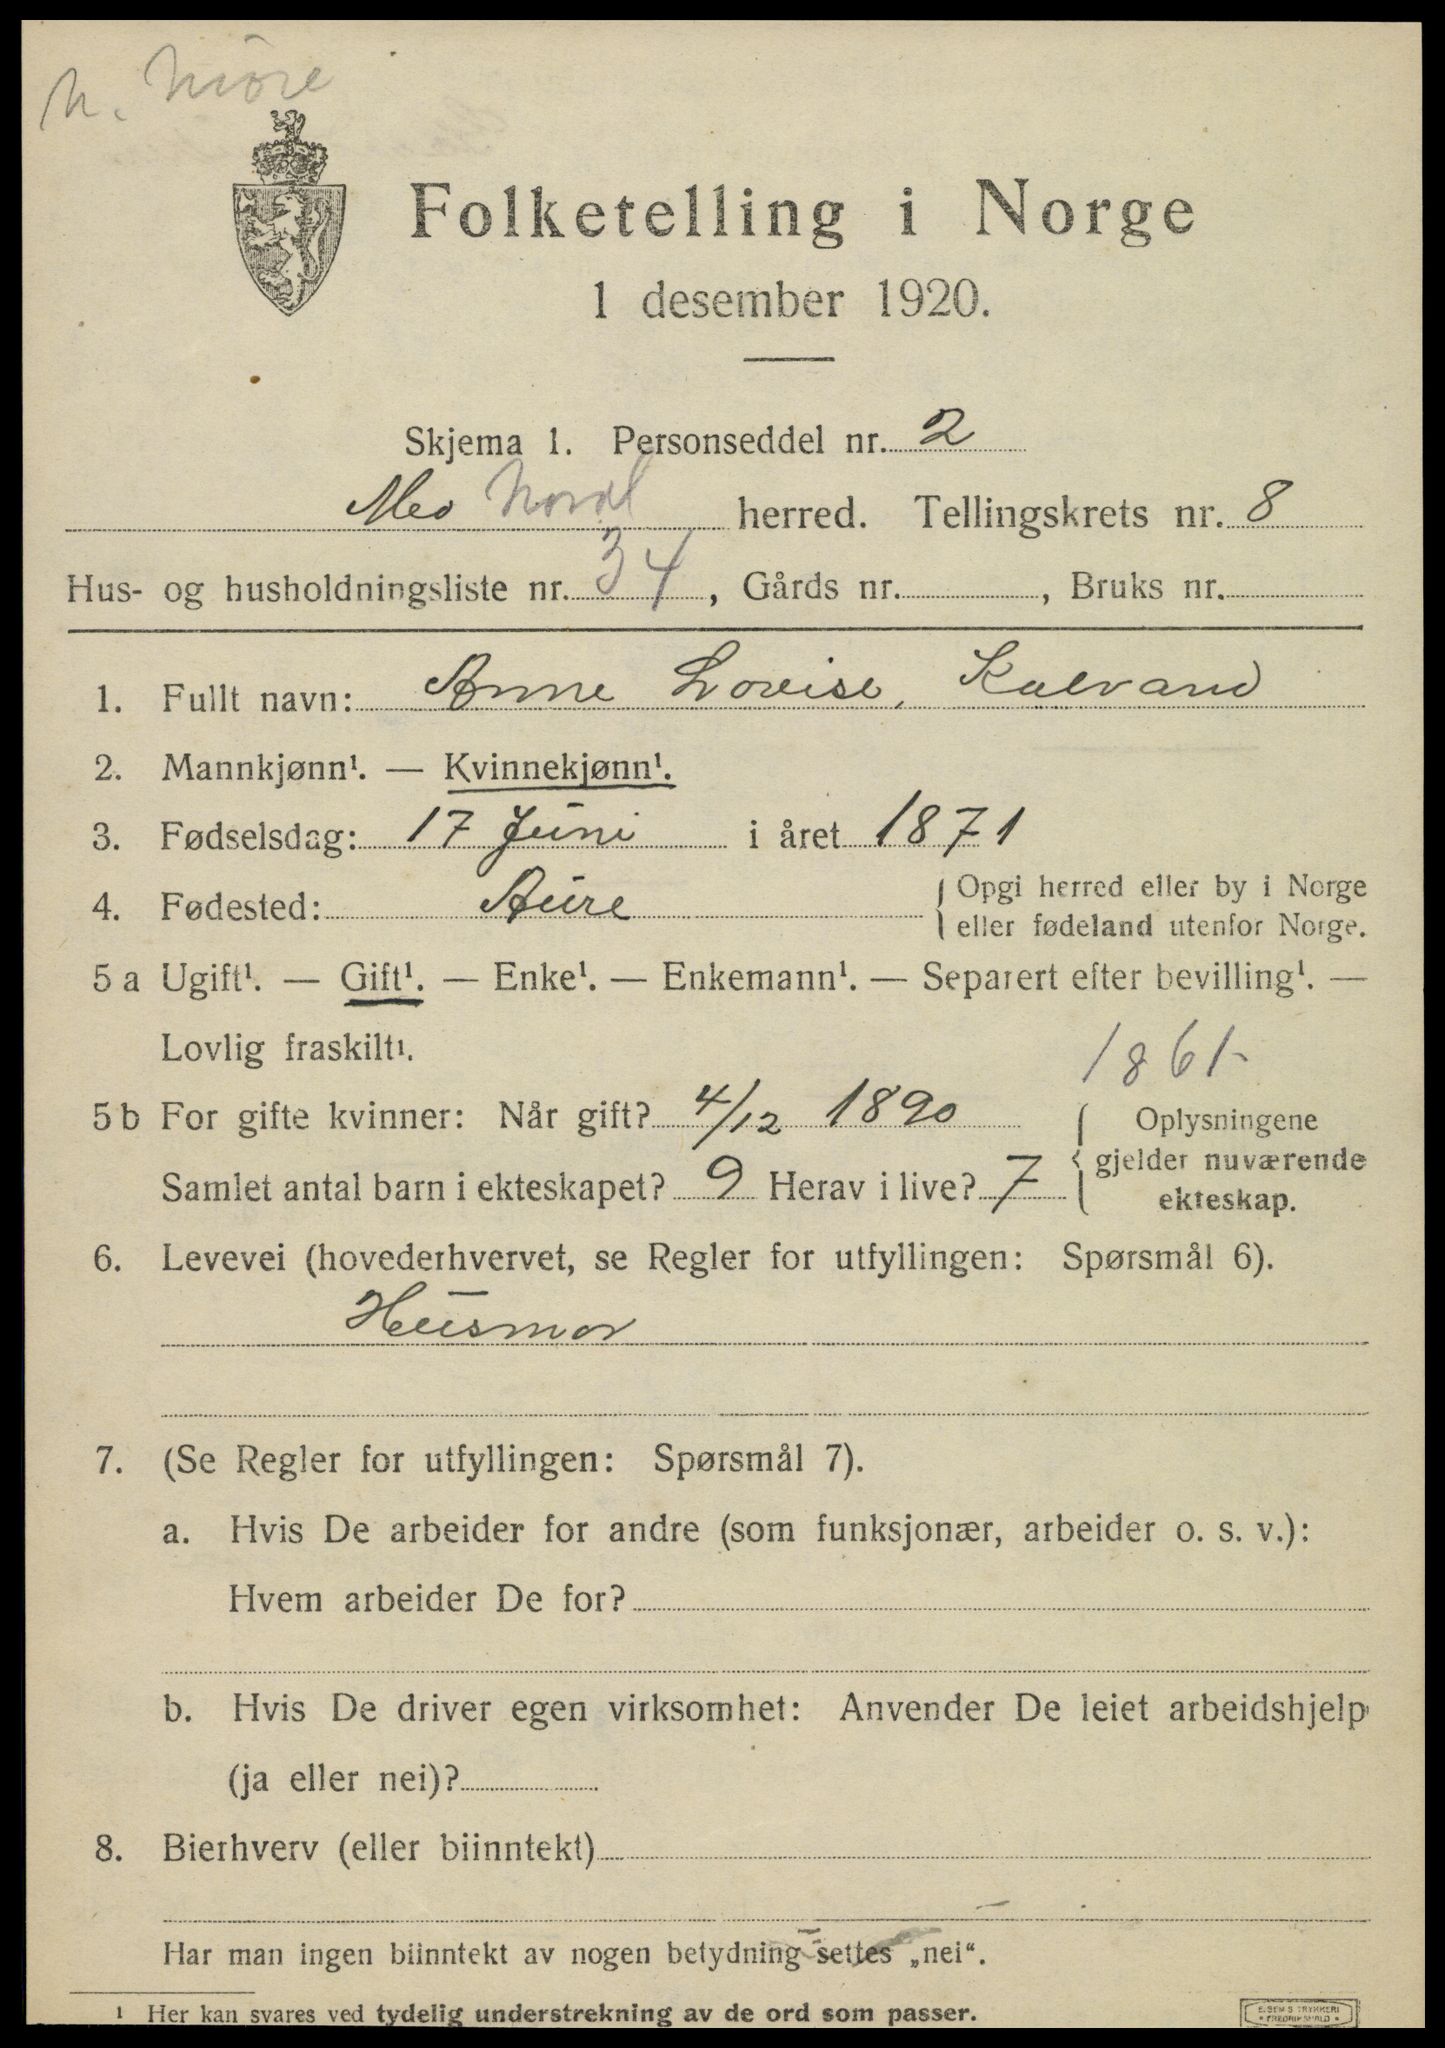 N. Möre
Folketelling i Norge
1 desember 1920.
Skjema 1. Personseddel nr. 2
herred. Tellingskrets nr. 8
Hus- og husholdningsliste nr. 34, Gårds nr. , Bruks nr.
1. Fullt navn: Anne Lovise, Kalvand
2. Mannkjønn¹. — Kvinnekjønn¹.
3. Fødselsdag: 17 Juni i året 1871
4. Fødested: Aure { Opgi herred eller by i Norge
eller fødeland utenfor Norge.
5 a Ugift¹. — Gift¹. — Enke¹. — Enkemann¹. — Separert efter bevilling¹. —
Lovlig fraskilt¹.
1861-
5 b For gifte kvinner: Når gift? 4/12 1890 { Oplysningene
gjelder nuværende
Samlet antal barn i ekteskapet? 9 Herav i live? 7
ekteskap.
6. Levevei (hovederhvervet, se Regler for utfyllingen: Spørsmål 6).
Husmor
7. (Se Regler for utfyllingen: Spørsmål 7).
a. Hvis De arbeider for andre (som funksjonær, arbeider o. s. v.):
Hvem arbeider De for?
b. Hvis De driver egen virksomhet: Anvender De leiet arbeidshjelp
(ja eller nei)?
8. Bierhverv (eller biinntekt)
Har man ingen biinntekt av nogen betydning settes „nei“.
¹ Her kan svares ved tydelig understrekning av de ord som passer.
E. SEM S TRYKKERI
FREDRIKSHALD